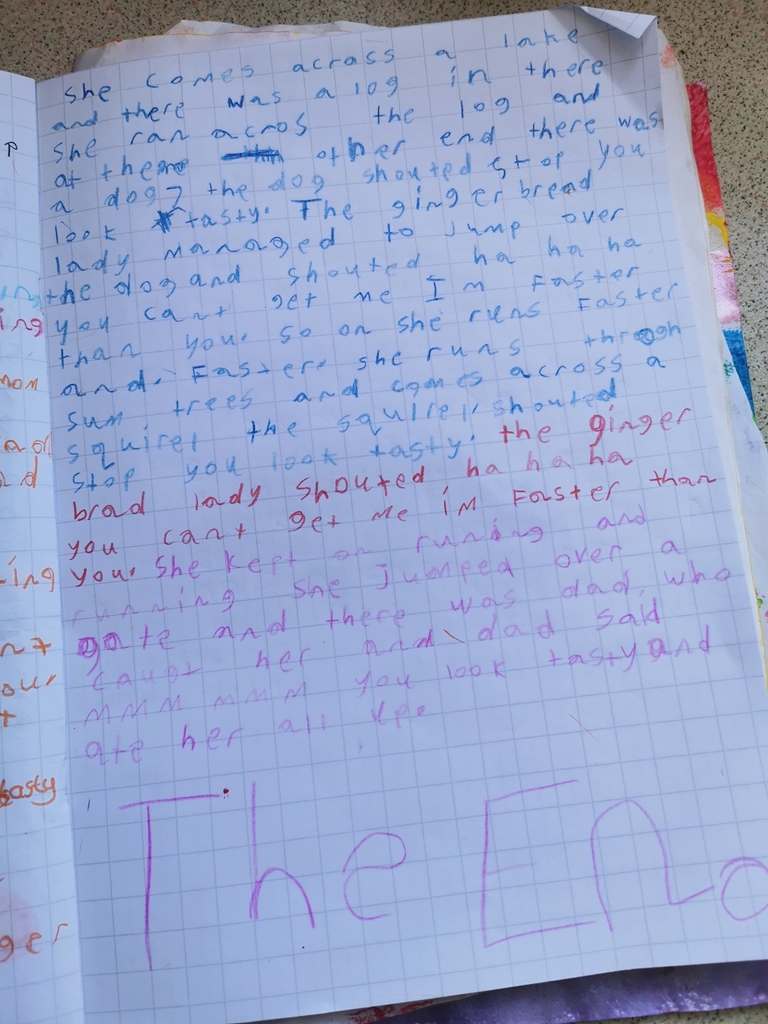 she comes across a lake
and there was a log in there
she ran acros the log and
at theme other end there was
a dog? the dog shouted stop you
look tasty. The ginger bread
lady managed to jump over
the dog and shouted ha ha ha
you cant get me Im Faster
than you. so on she runs Faster
and. Faster. she runs throgh
sum trees and comes across a
squirel the squirel shouted
stop you look tasty. the ginger
brad lady shouted ha ha ha
you can't get me im Faster than
you. She kept on runing and
running she jumped over a
gate and there was dad who
caupt her and dad said
mmm mmm you look tasty and
ate her all
The End
ing
mom
nd
ing
our
tasty
ger